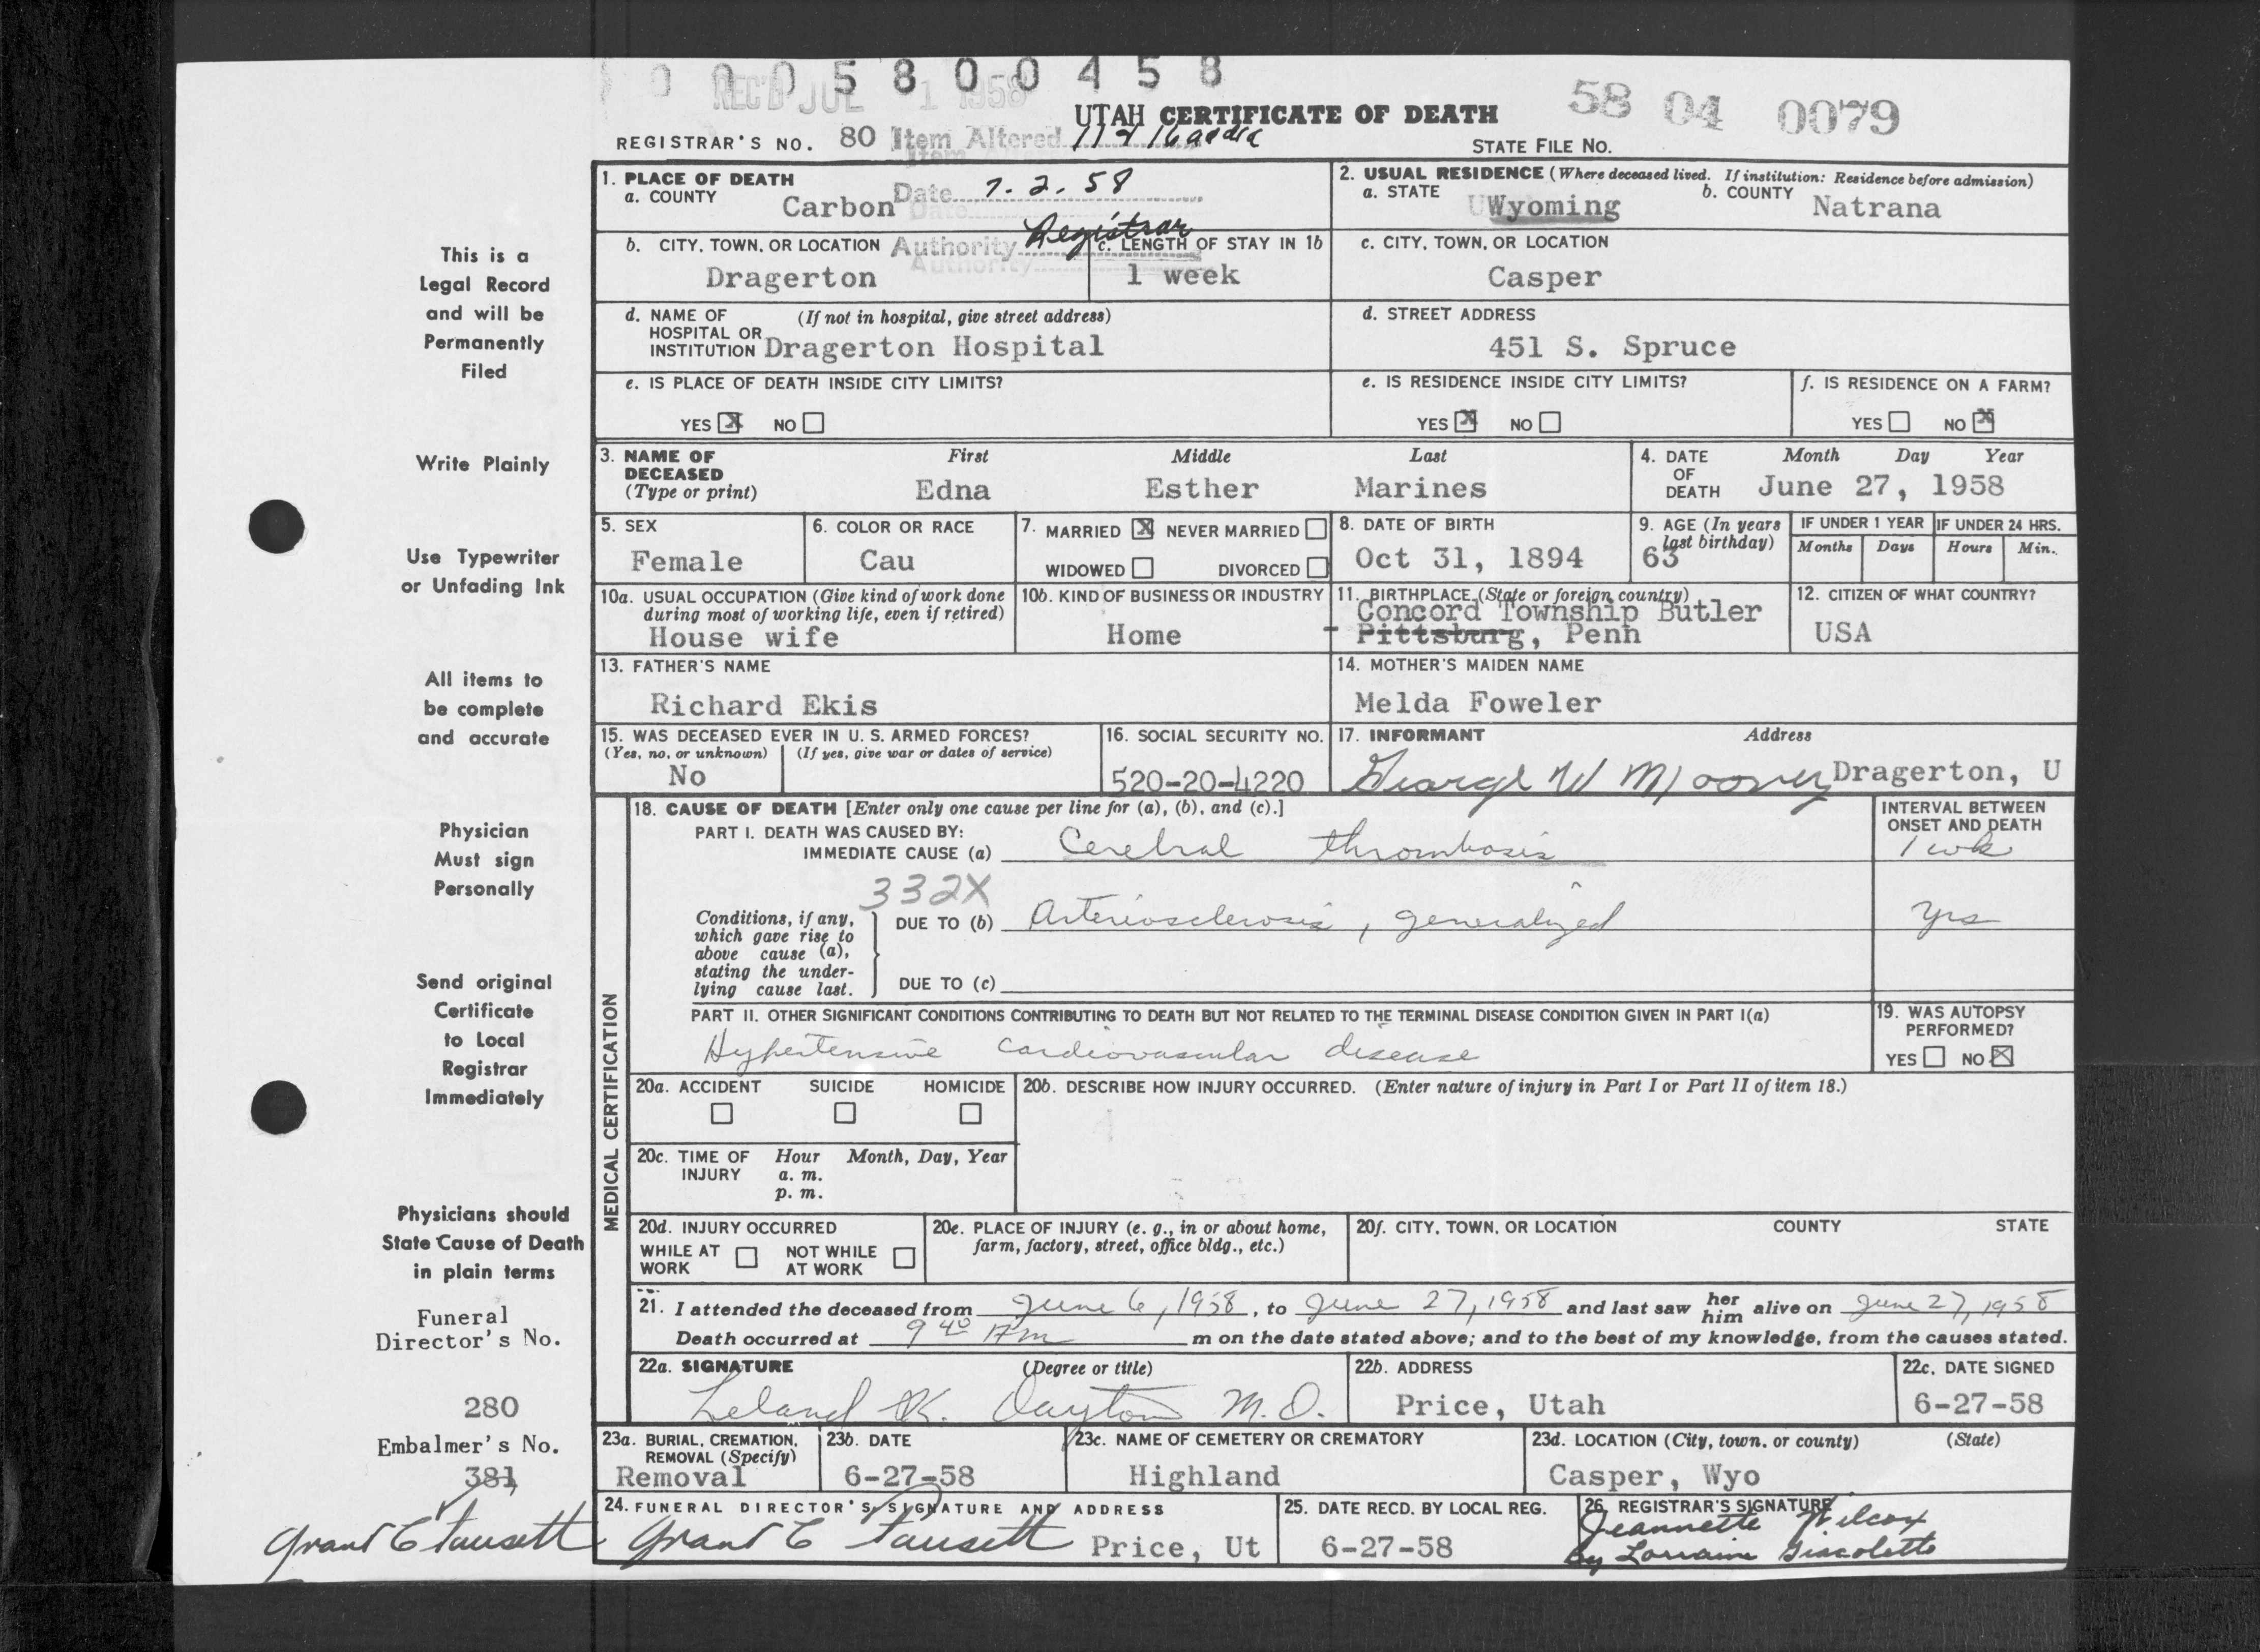 0 0 0 5 8 0 0 4 5 8
REC'D JUL 1 1958
58 04 0079
UTAH CERTIFICATE OF DEATH
REGISTRAR'S NO. 80 Item Altered
STATE FILE NO.
1. PLACE OF DEATH
a. COUNTY Carbon
Date 7.2.58
2. USUAL RESIDENCE (Where deceased lived. If institution: Residence before admission)
a. STATE Wyoming b. COUNTY Natrana
b. CITY, TOWN, OR LOCATION Dragerton
Authority Registrar
c. LENGTH OF STAY IN 1b 1 week
c. CITY, TOWN, OR LOCATION
Casper
d. NAME OF HOSPITAL OR INSTITUTION (If not in hospital, give street address)
Dragerton Hospital
d. STREET ADDRESS
451 S. Spruce
e. IS PLACE OF DEATH INSIDE CITY LIMITS?
YES X NO
e. IS RESIDENCE INSIDE CITY LIMITS?
YES X NO
f. IS RESIDENCE ON A FARM?
YES NO X
3. NAME OF DECEASED (Type or print)
First Middle Last
Edna Esther Marines
4. DATE OF DEATH Month Day Year
June 27, 1958
5. SEX
Female
6. COLOR OR RACE
Cau
7. MARRIED X NEVER MARRIED
WIDOWED DIVORCED
8. DATE OF BIRTH
Oct 31, 1894
9. AGE (In years last birthday)
63
IF UNDER 1 YEAR
Months Days
IF UNDER 24 HRS.
Hours Min.
10a. USUAL OCCUPATION (Give kind of work done during most of working life, even if retired)
House wife
10b. KIND OF BUSINESS OR INDUSTRY
Home
11. BIRTHPLACE (State or foreign country)
Concord Township Butler
Pittsburg, Penn
12. CITIZEN OF WHAT COUNTRY?
USA
13. FATHER'S NAME
Richard Ekis
14. MOTHER'S MAIDEN NAME
Melda Foweler
15. WAS DECEASED EVER IN U. S. ARMED FORCES?
(Yes, no, or unknown) (If yes, give war or dates of service)
No
16. SOCIAL SECURITY NO.
520-20-4220
17. INFORMANT Address
George W Dragerton, U
MEDICAL CERTIFICATION
18. CAUSE OF DEATH [Enter only one cause per line for (a), (b), and (c).]
INTERVAL BETWEEN ONSET AND DEATH
PART I. DEATH WAS CAUSED BY:
IMMEDIATE CAUSE (a) Cerebral thrombosis 1 wk
332X
Conditions, if any, which gave rise to above cause (a), stating the underlying cause last.
DUE TO (b) Arteriosclerosis, generalized yrs
DUE TO (c)
PART II. OTHER SIGNIFICANT CONDITIONS CONTRIBUTING TO DEATH BUT NOT RELATED TO THE TERMINAL DISEASE CONDITION GIVEN IN PART I(a)
Hypertensive cardiovascular disease
19. WAS AUTOPSY PERFORMED?
YES NO X
20a. ACCIDENT SUICIDE HOMICIDE
20b. DESCRIBE HOW INJURY OCCURRED. (Enter nature of injury in Part I or Part II of item 18.)
20c. TIME OF INJURY Hour Month, Day, Year
a. m.
p. m.
20d. INJURY OCCURRED
WHILE AT WORK NOT WHILE AT WORK
20e. PLACE OF INJURY (e. g., in or about home, farm, factory, street, office bldg., etc.)
20f. CITY, TOWN, OR LOCATION COUNTY STATE
21. I attended the deceased from June 6, 1958, to June 27, 1958 and last saw her him alive on June 27, 1958
Death occurred at 9 40 AM m on the date stated above; and to the best of my knowledge, from the causes stated.
22a. SIGNATURE (Degree or title)
Leland K. Dayton M.D.
22b. ADDRESS
Price, Utah
22c. DATE SIGNED
6-27-58
23a. BURIAL, CREMATION, REMOVAL (Specify)
Removal
23b. DATE
6-27-58
23c. NAME OF CEMETERY OR CREMATORY
Highland
23d. LOCATION (City, town, or county) (State)
Casper, Wyo
24. FUNERAL DIRECTOR'S SIGNATURE AND ADDRESS
Grant C Fausett Price, Ut
25. DATE RECD. BY LOCAL REG.
6-27-58
26. REGISTRAR'S SIGNATURE
Jeannette Wilcox
By Lorraine Giacoletto
This is a
Legal Record
and will be
Permanently
Filed
Write Plainly
Use Typewriter
or Unfading Ink
All items to
be complete
and accurate
Physician
Must sign
Personally
Send original
Certificate
to Local
Registrar
Immediately
Physicians should
State Cause of Death
in plain terms
Funeral
Director's No.
280
Embalmer's No.
381
Grant C Fausett